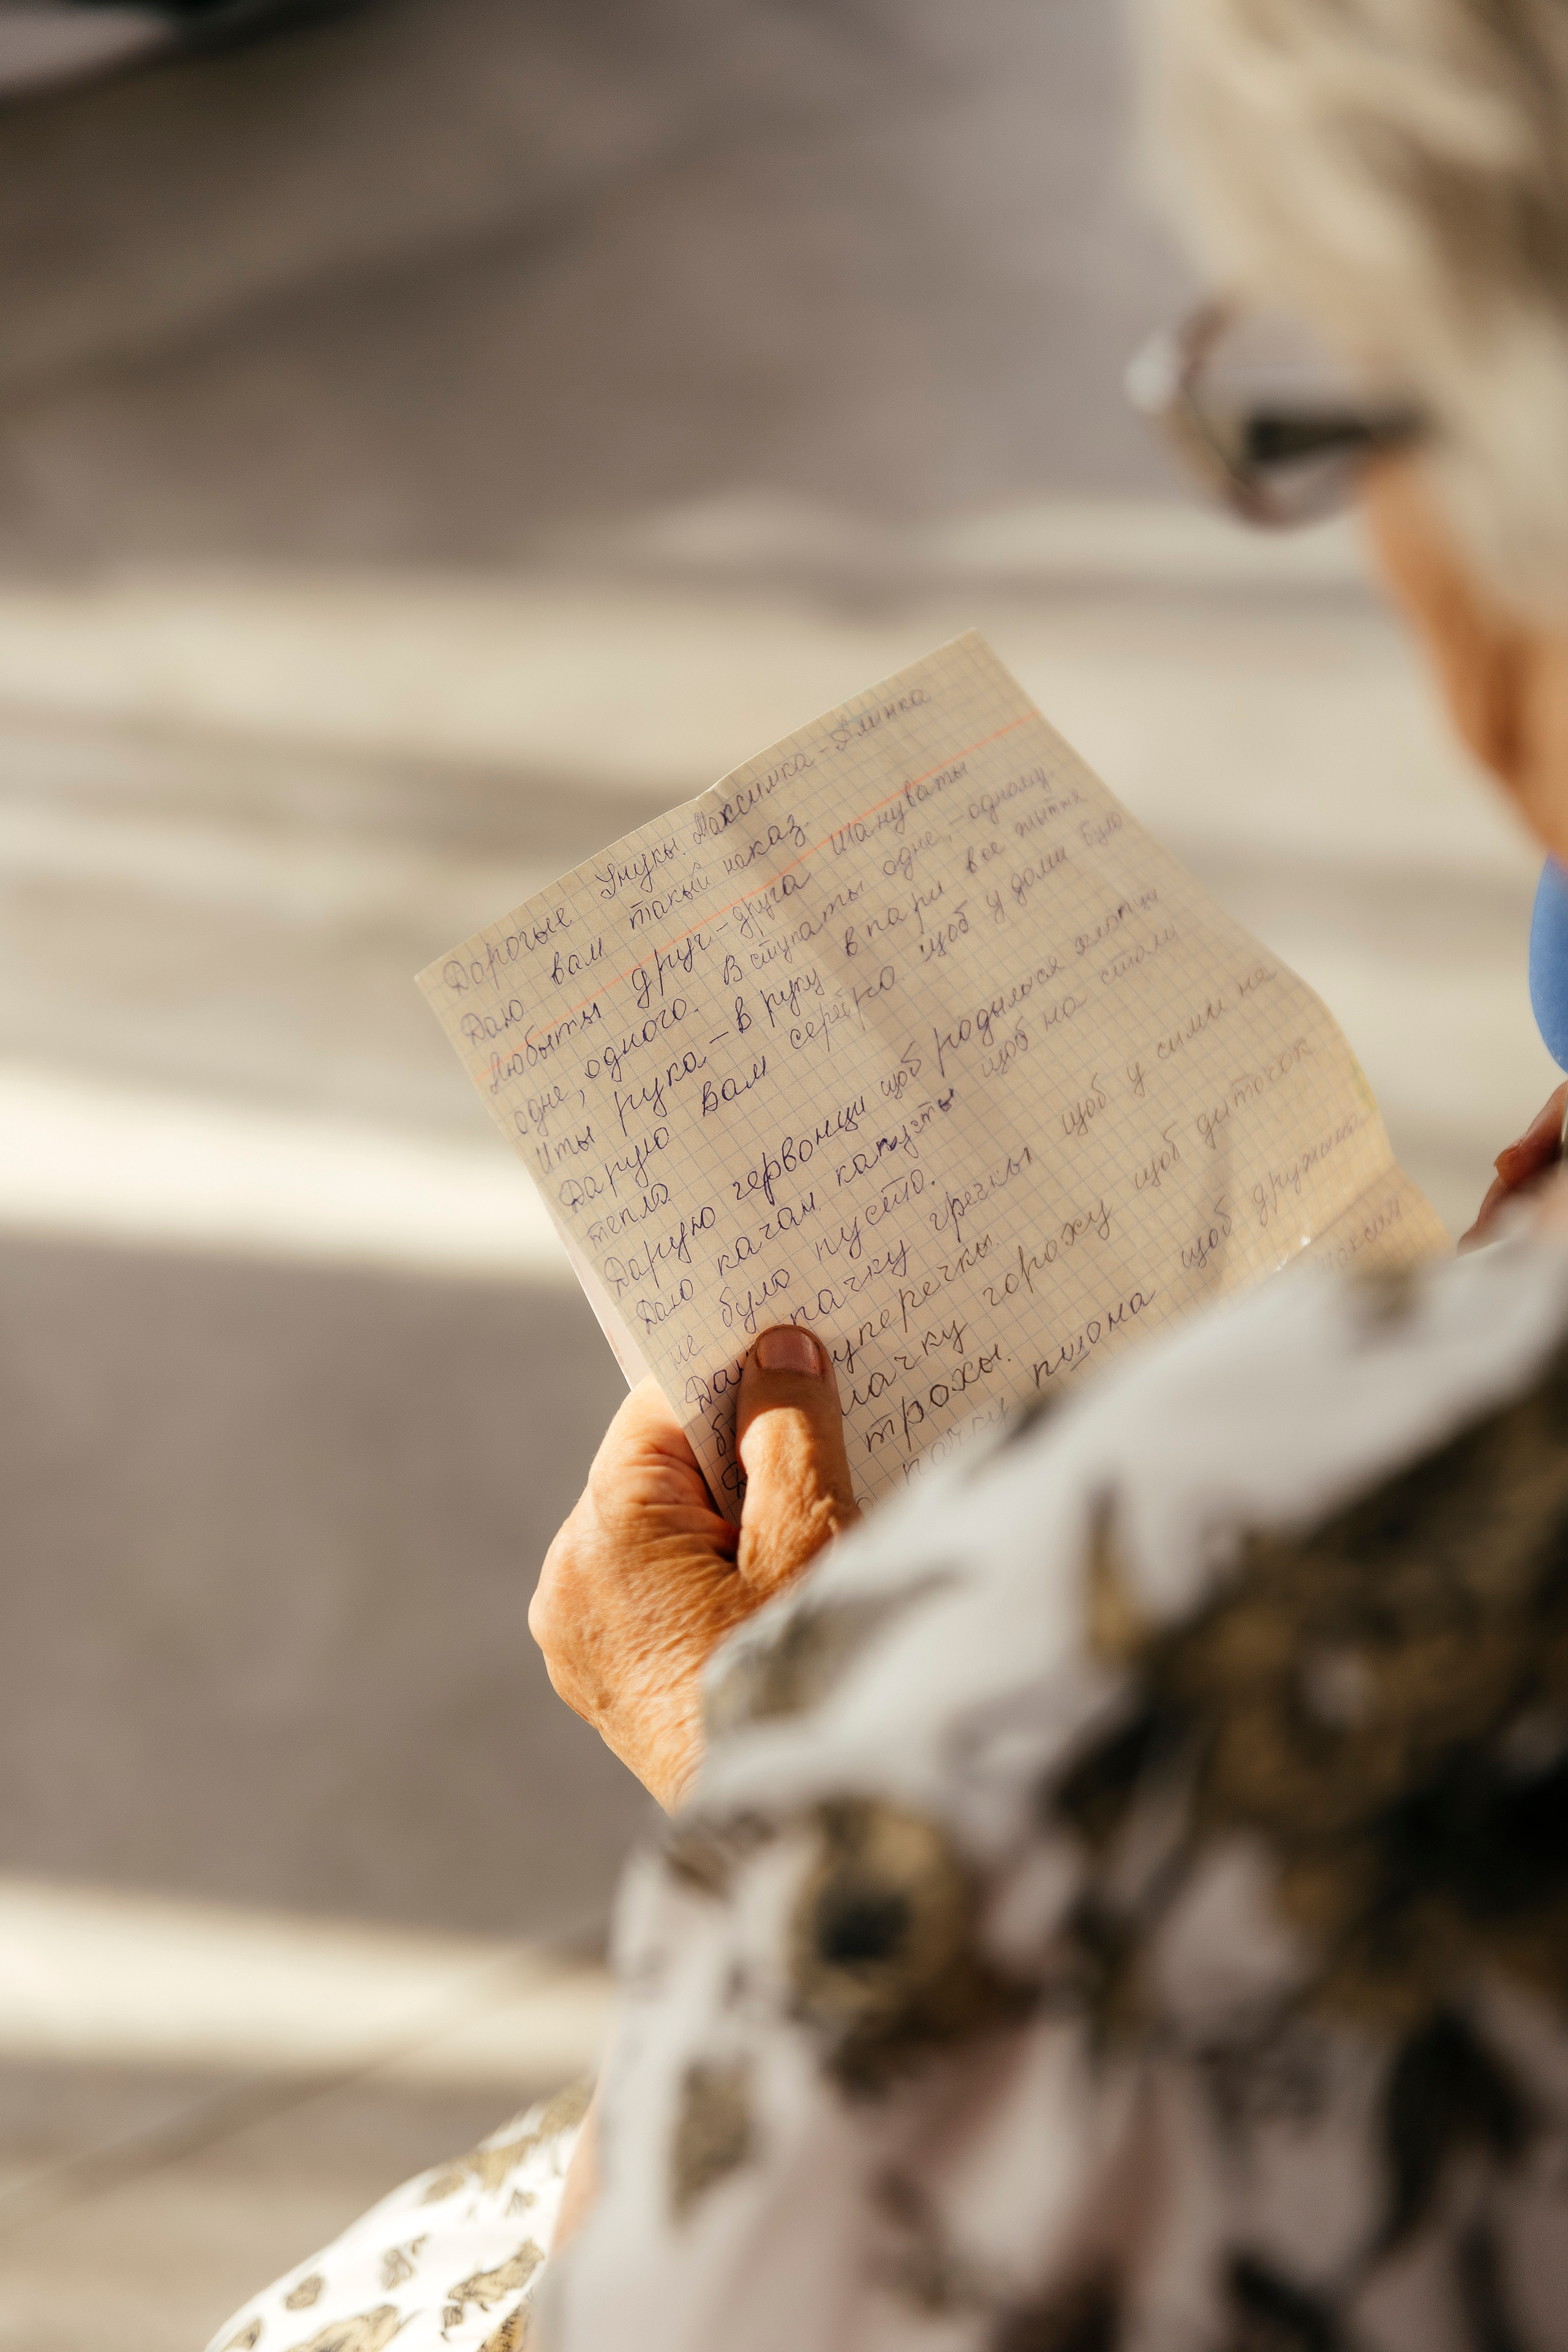 Дарогые Унукы. Максимка - Алинка
Даю вам такый наказ.
Любыты друг-друга Шануваты
одне, одного. Вступаты одне, - одному.
Иты рука - в руку в пари все життя
Дарую вам серебро щоб у доми було
тепло
Дарую червонци щоб родылыся хлопци
Даю качан капусты щоб на столи
не було пусто.
пачку гречкы щоб у сими не
уперечкы.
пачку гороху щоб диточок
трохы.
пачку пшона щоб